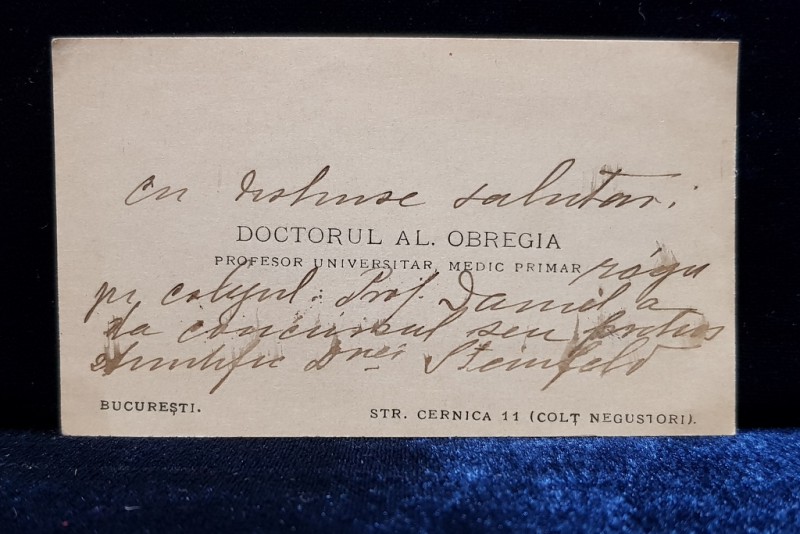 cu distinse salutari
DOCTORUL AL. OBREGIA
PROFESOR UNIVERSITAR, MEDIC PRIMAR róga
pe colegul: Prof. Daniel a
da concursul seu
stiintific Dnei Steinfeld
BUCUREȘTI.
STR. CERNICA 11 (COLȚ NEGUSTORI).